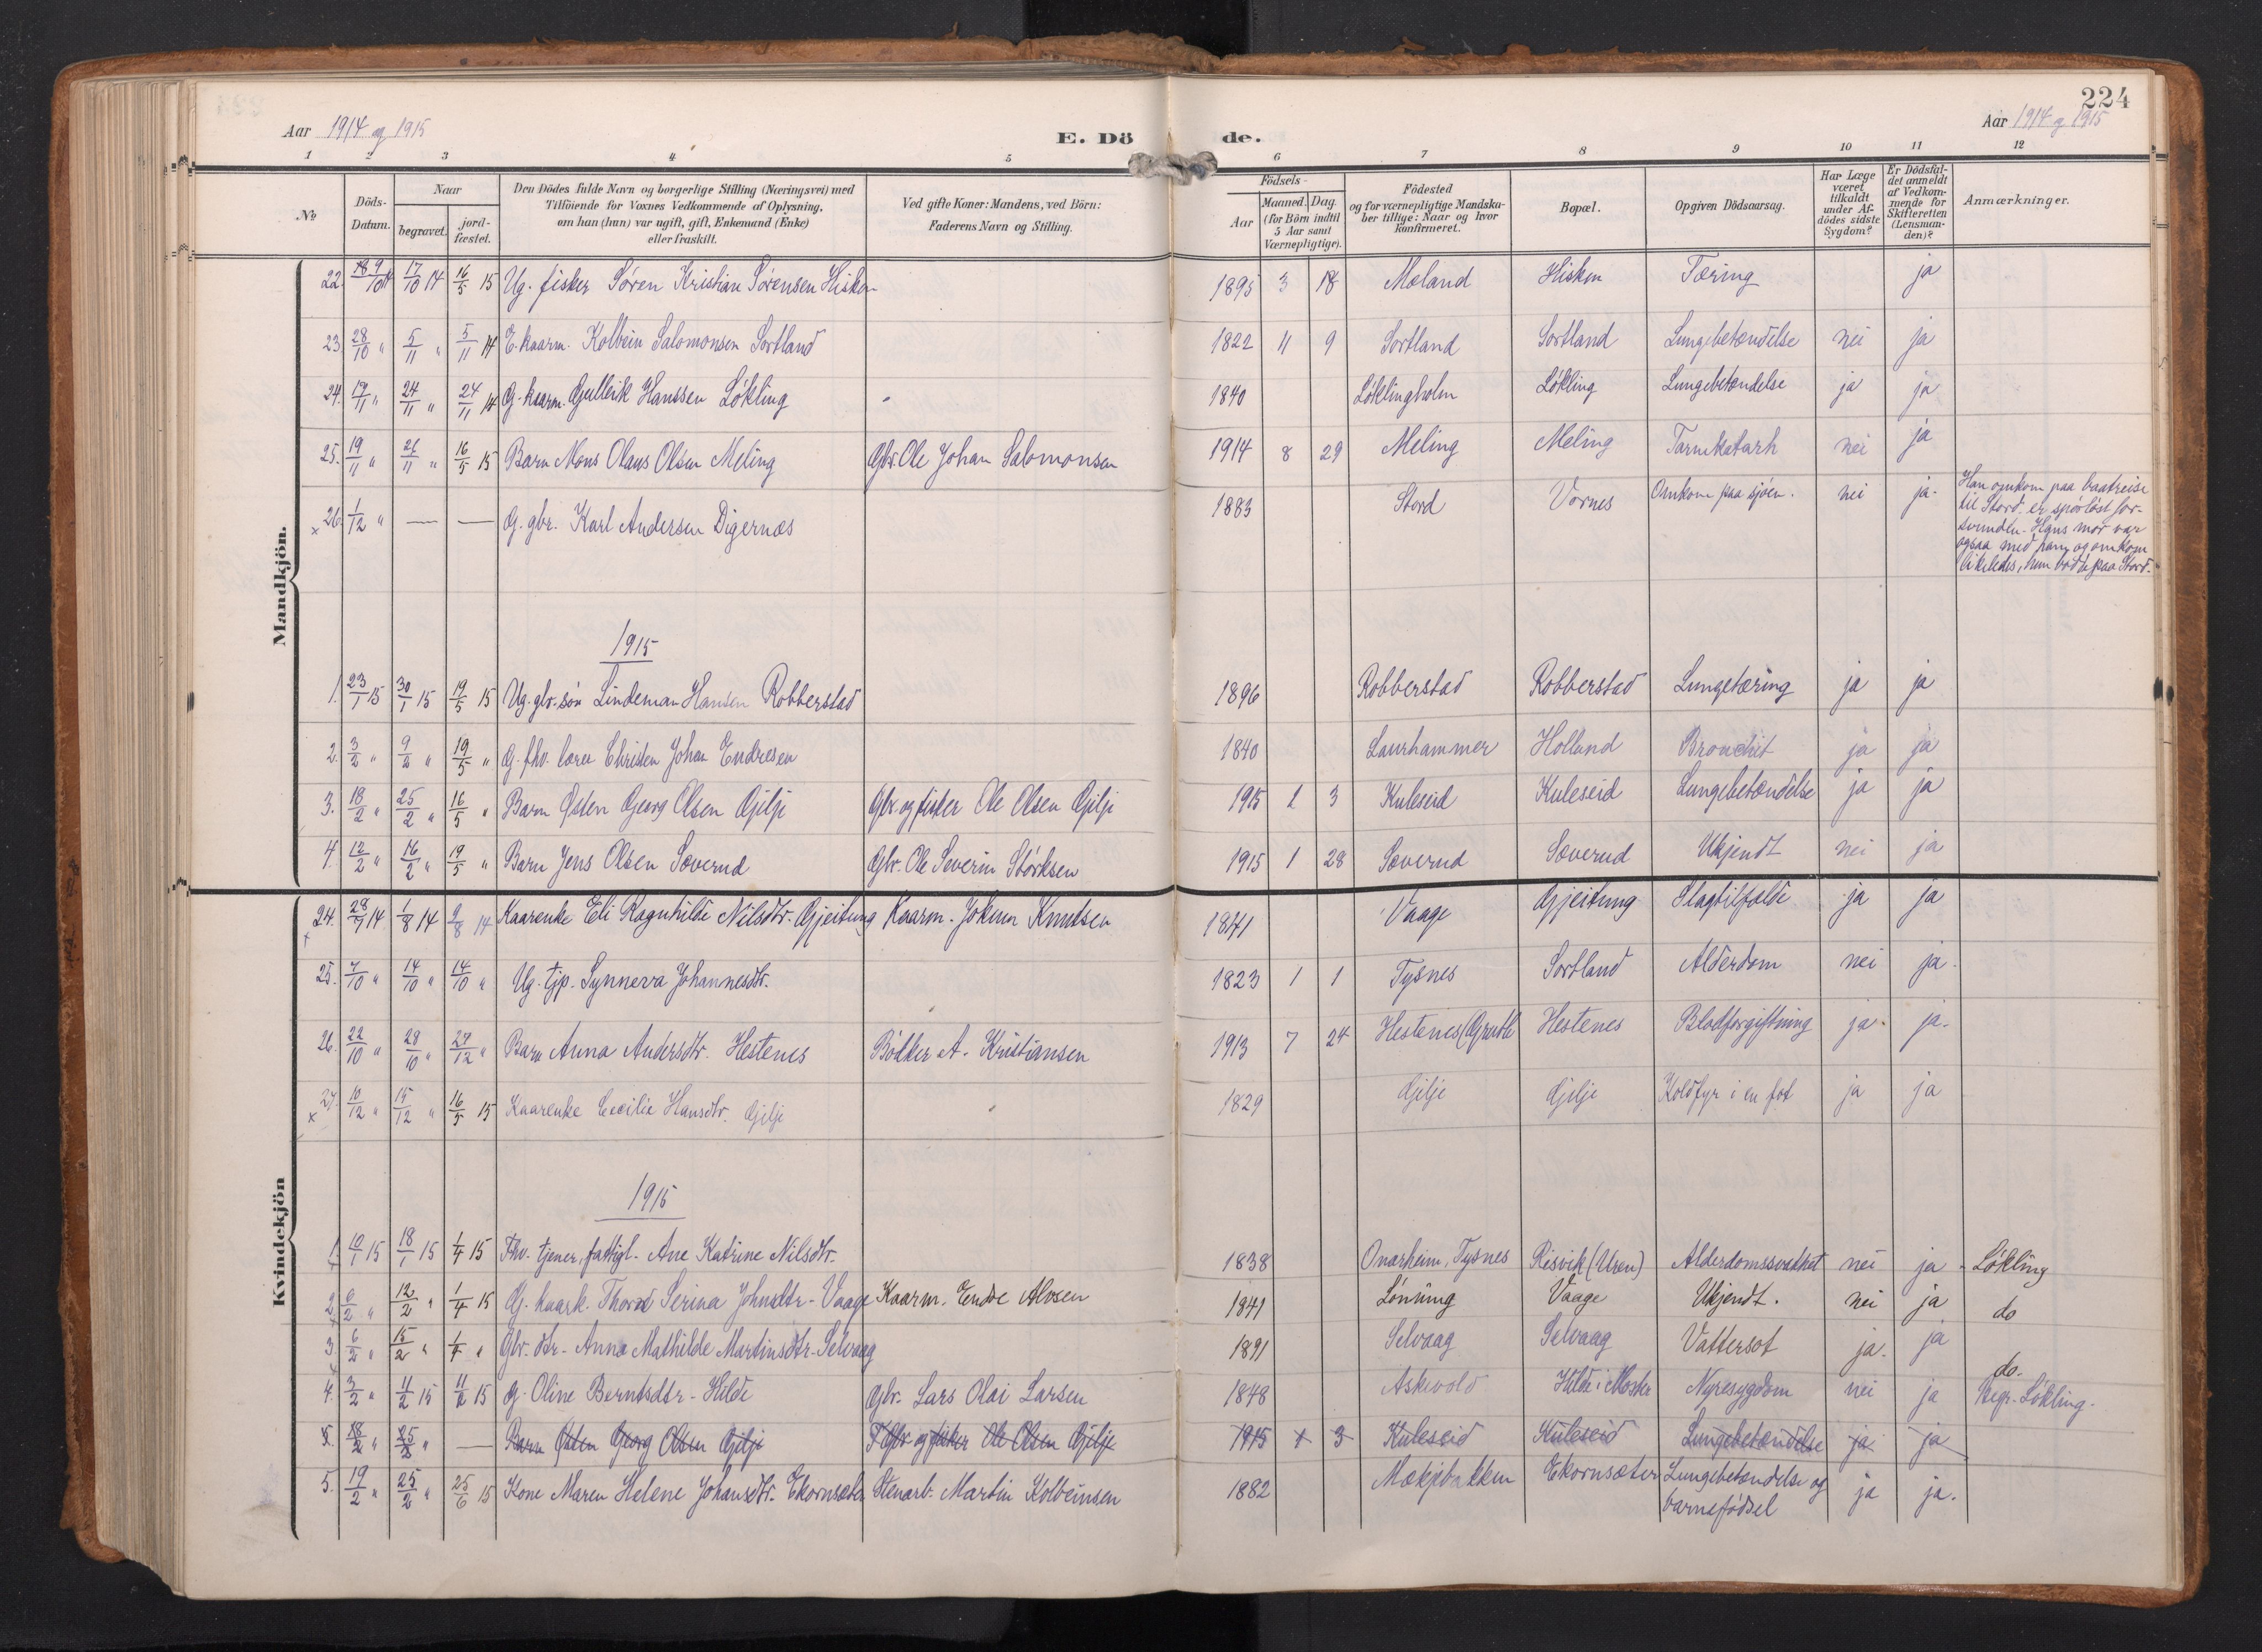 224
Aar 1914 og 1915
E. Dö de.
Aar 1914 og 1915
1 2 3 4 5 6 7 8 9 10 11 12
No
Döds-Datum.
Naar
begravet.
jord-fæstet.
Den Dödes fulde Navn og borgerlige Stilling (Næringsvei) med
Tilföiende for Voxnes Vedkommende af Oplysning,
om han (hun) var ugift, gift, Enkemand (Enke)
eller fraskilt.
Ved gifte Koner: Mandens, ved Börn:
Faderens Navn og Stilling.
Födsels-
Aar
Maaned. Dag.
(for Börn indtil
5 Aar samt
Værnepligtige).
Födested
og for værnepligtige Mandska-
ber tillige: Naar og hvor
konfirmeret.
Bopæl.
Opgiven Dödsaarsag.
Har Læge
været
tilkaldt
under Af-
dödes sidste
Sygdom?
Er Dödsfal-
det anmeldt
af Vedkom-
mende for
Skifteretten
(Lensman-
den)?
Anmærkninger.
Mandkjön.
22. 9/10 14 17/10 14 16/5 15 Ug. fisker Søren Kristian Sørensen Hisken 1895 3 18 Mæland Hisken Tæring ja
23. 28/10 " 5/11 " 5/11 14 E. kaarm. Kolbein Salomonsen Sortland 1822 11 9 Sortland Sortland Lungebetændelse nei ja
24. 19/11 " 24/11 " 24/11 14 G. kaarm. Gullik Hanssen Løkling 1840 Løklingholm Løkling Lungebetændelse ja ja
25. 19/11 " 26/11 " 16/5 15 Barn Mons Olaus Olsen Meling Gbr. Ole Johan Salomonsen 1914 8 29 Meling Meling Tarmkatarh nei ja
x 26. 1/12 " — — G. gbr. Karl Andersen Digernæs 1883 Stord Vornes Omkom paa sjøen. nei ja. Han omkom paa baatreise
til Stord. er sporløst for-
svunden. Hans mor var
ogsaa med ham og omkom
likeledes, hun bodde paa Stord.
1915
1. 23/1 15 30/1 15 19/5 15 Ug. gbr. søn Lindeman Hansen Robberstad 1896 Robberstad Robberstad Lungetæring ja ja
2. 3/2 " 9/2 " 19/5 " G. fhv. lærer Christen Johan Endresen 1840 Laurhammer Holland Bronchit ja ja
3. 18/2 " 25/2 " 16/5 " Barn Østen Georg Olsen Gjilje Gbr. og fisker Ole Olsen Gjilje 1915 1 3 Kuleseid Kuleseid Lungebetændelse ja ja
4. 12/2 " 16/2 " 19/5 " Barn Jens Olsen Sæverud Gbr. Ole Severin Størksen 1915 1 28 Sæverud Sæverud Ukjendt nei ja
Kvindekjön
x 24. 28/7 14 1/8 14 2/8 14 Kaarenke Eli Ragnhilde Nilsdtr. Gjeitung Kaarm. Jokum Knutsen 1841 Vaage Gjeitung Slagtilfælde ja ja
25. 7/10 " 14/10 " 14/10 " Ug. tjp. Synneva Johannesdtr. 1823 1 1 Tysnes Sortland Alderdom nei ja.
26. 22/10 " 28/10 " 27/12 " Barn Anna Andersdtr. Hestenes Bødker A. Kristiansen 1913 7 24 Hestenes Hestenes Blodforgiftning ja. ja.
x 27. 10/12 " 15/12 " 16/5 15 Kaarenke Cecilie Hansdtr. Gjilje 1829 Gjilje Gjilje Koldfyr i en fot ja ja
1915
1. 10/1 15 18/1 15 1/4 15 Fhv. tjener, fattigl. Ane Katrine Nilsdtr. 1838 Onarheim, Tysnes Risvik (Uren) Alderdomssvækket nei ja Løkling
2. 6/2 " 12/2 " 1/4 15 G. kaark. Serina Johnsdtr. Vaage Kaarm. Endre Alvsen 1841 Lønning Vaage Ukjendt. nei ja do
3. 6/2 " 15/2 " 1/4 " Gbr. dtr. Anna Mathilde Martinsdtr. Selvaag 1891 Selvaag Selvaag Vattersot ja. ja do.
4. 3/2 " 11/2 15 11/2 15 G. Oline Berntsdtr. Hilde Gbr. Lars Olai Larsen 1848 Askevold Hilde i Moster Nyresygdom nei ja Begr. Løkling.
5. 18/2 " 25/2 " — Barn Østen Georg Olsen Gjilje Gbr. og fisker Ole Olsen Gjilje 1915 1 3 Kuleseid Kuleseid Lungebetændelse ja ja
5. 19/2 " 25/2 " 25/6 15 Kone Maren Helene Johansdtr. Ekornsæter Stenarb. Martin Kolbeinsen 1882 Mækjebakken Ekornsæter Lungebetændelse og
barnefødsel ja ja.